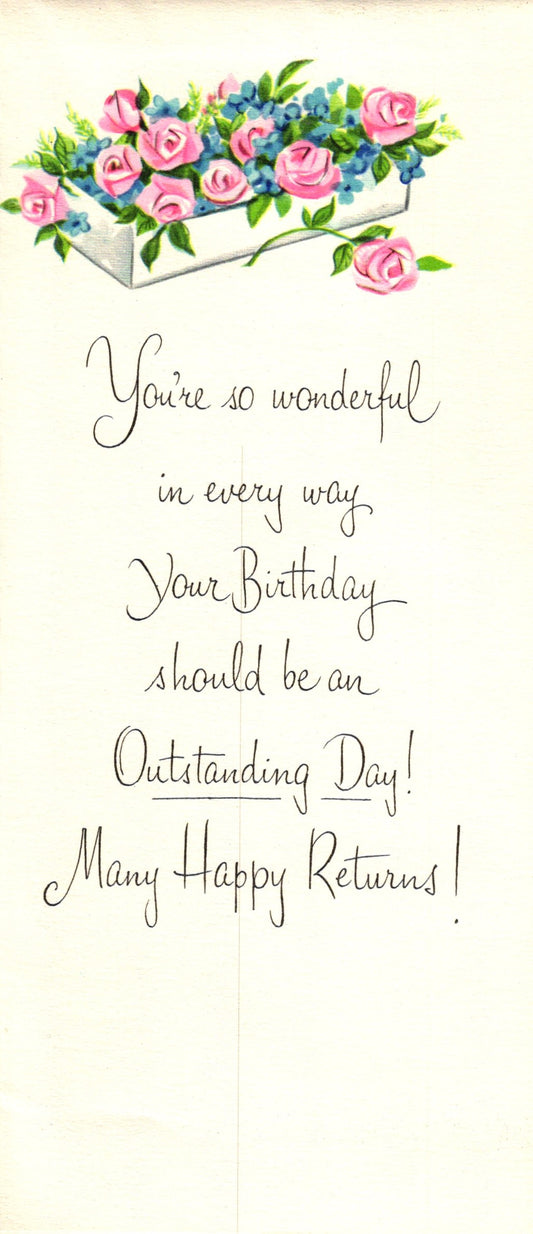 You're so wonderful
in every way
Your Birthday
should be an
Outstanding Day!
Many Happy Returns!